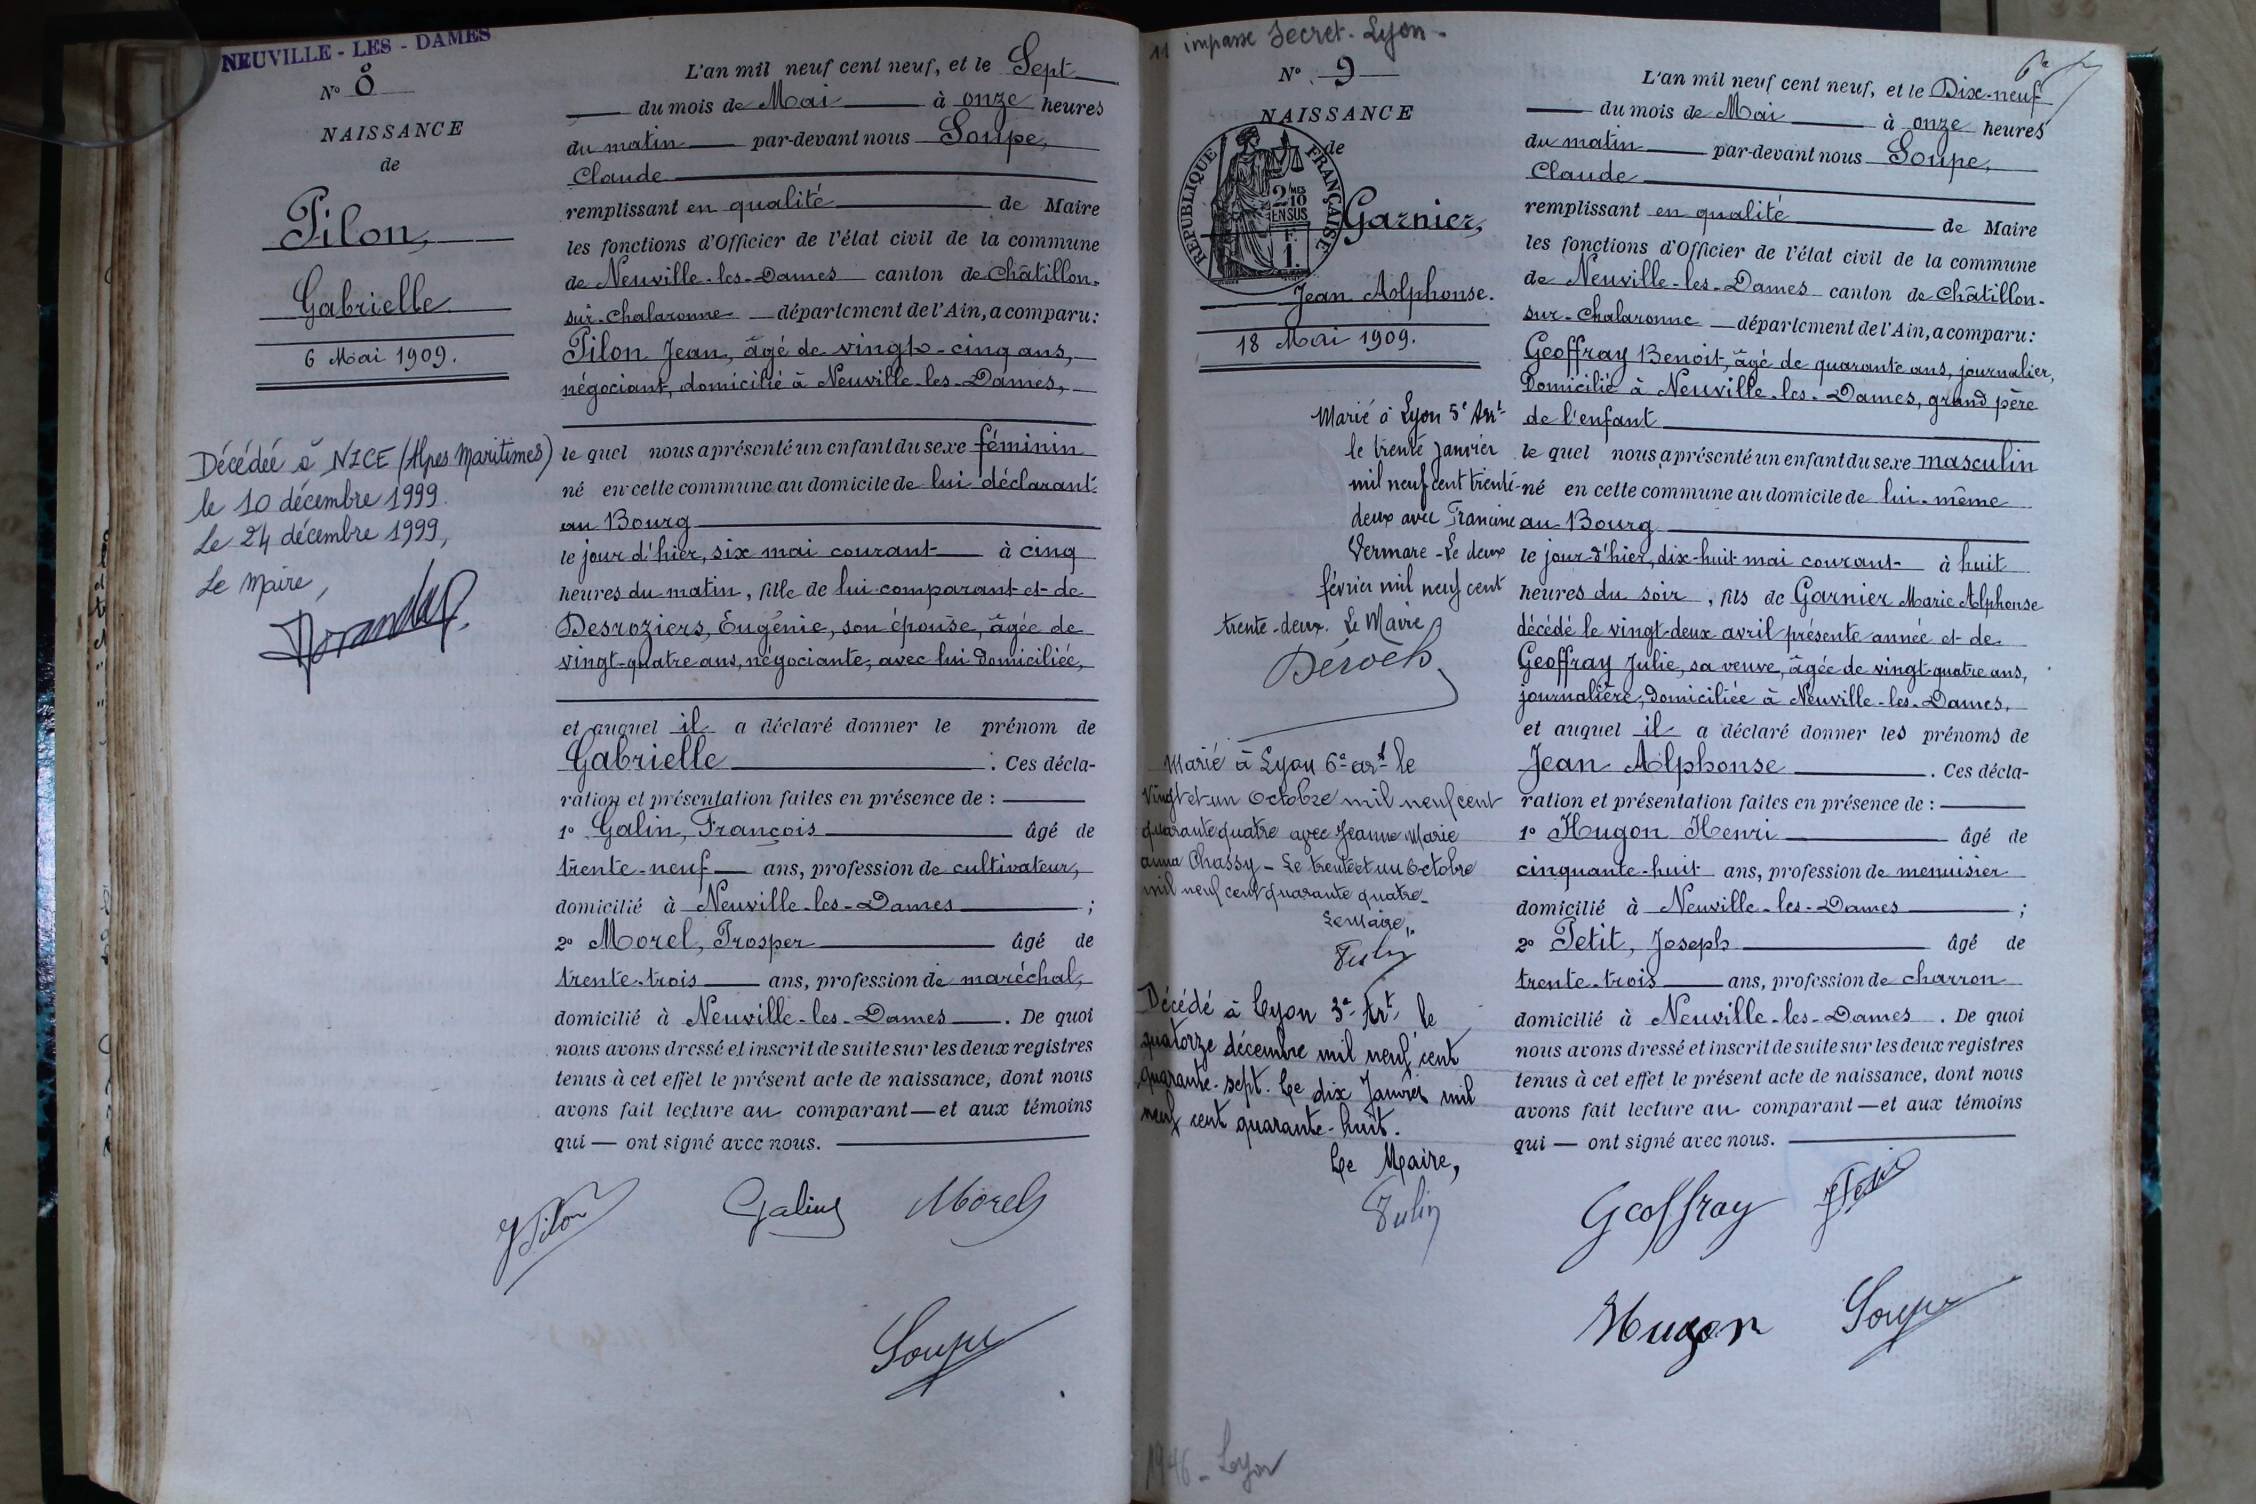 NEUVILLE - LES - DAMES
N° 8
NAISSANCE
de
Pilon,
Gabrielle
6 Mai 1909.
Décédée à NICE (Alpes Maritimes)
le 10 décembre 1999.
Le 24 décembre 1999,
Le Maire,
L'an mil neuf cent neuf, et le Sept
du mois de Mai à onze heures
du matin par-devant nous Soupe,
Claude
remplissant en qualité de Maire
les fonctions d'Officier de l'état civil de la commune
de Neuville-les-Dames canton de Châtillon-
sur-Chalaronne département de l'Ain, a comparu:
Pilon Jean, âgé de vingt-cinq ans,
négociant, domicilié à Neuville-les-Dames,
le quel nous a présenté un enfant du sexe féminin
né en cette commune au domicile de lui déclarant
au Bourg
le jour d'hier, six mai courant à cinq
heures du matin, fille de lui comparant et de
Desroziers, Eugénie, son épouse, âgée de
vingt-quatre ans, négociante, avec lui domiciliée,
et auquel il a déclaré donner le prénom de
Gabrielle. Ces décla-
ration et présentation faites en présence de :
1° Galin, François âgé de
trente-neuf ans, profession de cultivateur,
domicilié à Neuville-les-Dames ;
2° Morel, Prosper âgé de
trente-trois ans, profession de maréchal,
domicilié à Neuville-les-Dames. De quoi
nous avons dressé et inscrit de suite sur les deux registres
tenus à cet effet le présent acte de naissance, dont nous
avons fait lecture au comparant — et aux témoins
qui — ont signé avec nous.
JPilon Galin Morel
Soupe
11 impasse Secret. Lyon -
N° 9
NAISSANCE
de
RÉPUBLIQUE FRANÇAISE
2/10MES
EN SUS
F.
1.
Garnier,
Jean Alphonse.
18 Mai 1909.
Marié à Lyon 5e Arrt
le trente janvier
mil neuf cent trente-
deux avec Francine
Vermare - Le deux
février mil neuf cent
trente-deux. Le Maire
Marié à Lyon 6e art le
vingt et un octobre mil neuf cent
quarante quatre avec Jeanne Marie
anna Chassy - Le trente et un Octobre
mil neuf cent quarante quatre
Le Maire,
Tulin
Décédé à Lyon 3e Art le
quatorze décembre mil neuf cent
quarante-sept. Le dix Janvier mil
neuf cent quarante-huit.
Le Maire,
Tulin
1946 - Lyon
L'an mil neuf cent neuf, et le Dix-neuf
du mois de Mai à onze heures
du matin par-devant nous Soupe,
Claude
remplissant en qualité de Maire
les fonctions d'Officier de l'état civil de la commune
de Neuville-les-Dames canton de Châtillon-
sur-Chalaronne département de l'Ain, a comparu:
Geoffray Benoit, âgé de quarante ans, journalier,
Domicilié à Neuville-les-Dames, grand père
de l'enfant
le quel nous a présenté un enfant du sexe masculin
né en cette commune au domicile de lui-même
au Bourg
le jour d'hier, dix-huit mai courant à huit
heures du soir, fils de Garnier Marie Alphonse
décédé le vingt-deux avril présente année et de
Geoffray Julie, sa veuve, âgée de vingt-quatre ans,
journalière, domiciliée à Neuville-les-Dames,
et auquel il a déclaré donner les prénoms de
Jean Alphonse. Ces décla-
ration et présentation faites en présence de :
1° Hugon Henri âgé de
cinquante-huit ans, profession de menuisier
domicilié à Neuville-les-Dames ;
2° Petit, Joseph âgé de
trente-trois ans, profession de charron
domicilié à Neuville-les-Dames. De quoi
nous avons dressé et inscrit de suite sur les deux registres
tenus à cet effet le présent acte de naissance, dont nous
avons fait lecture au comparant — et aux témoins
qui — ont signé avec nous.
Geoffray JPetit
Hugon Soupe